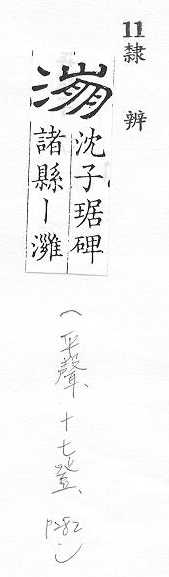 11隸辨
漰
沈子琚碑
諸縣丨灉
（平聲、十七登、p282）